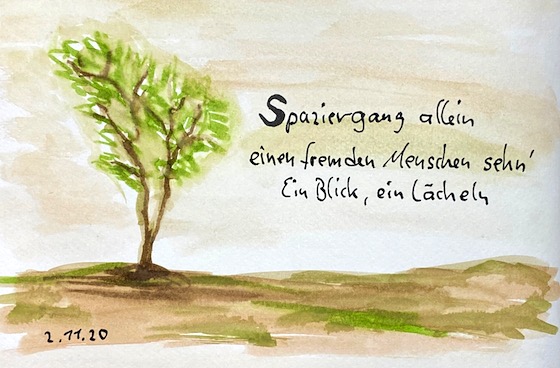 Spaziergang allein
einen fremden Menschen sehn'
Ein Blick, ein Lächeln
2.11.20